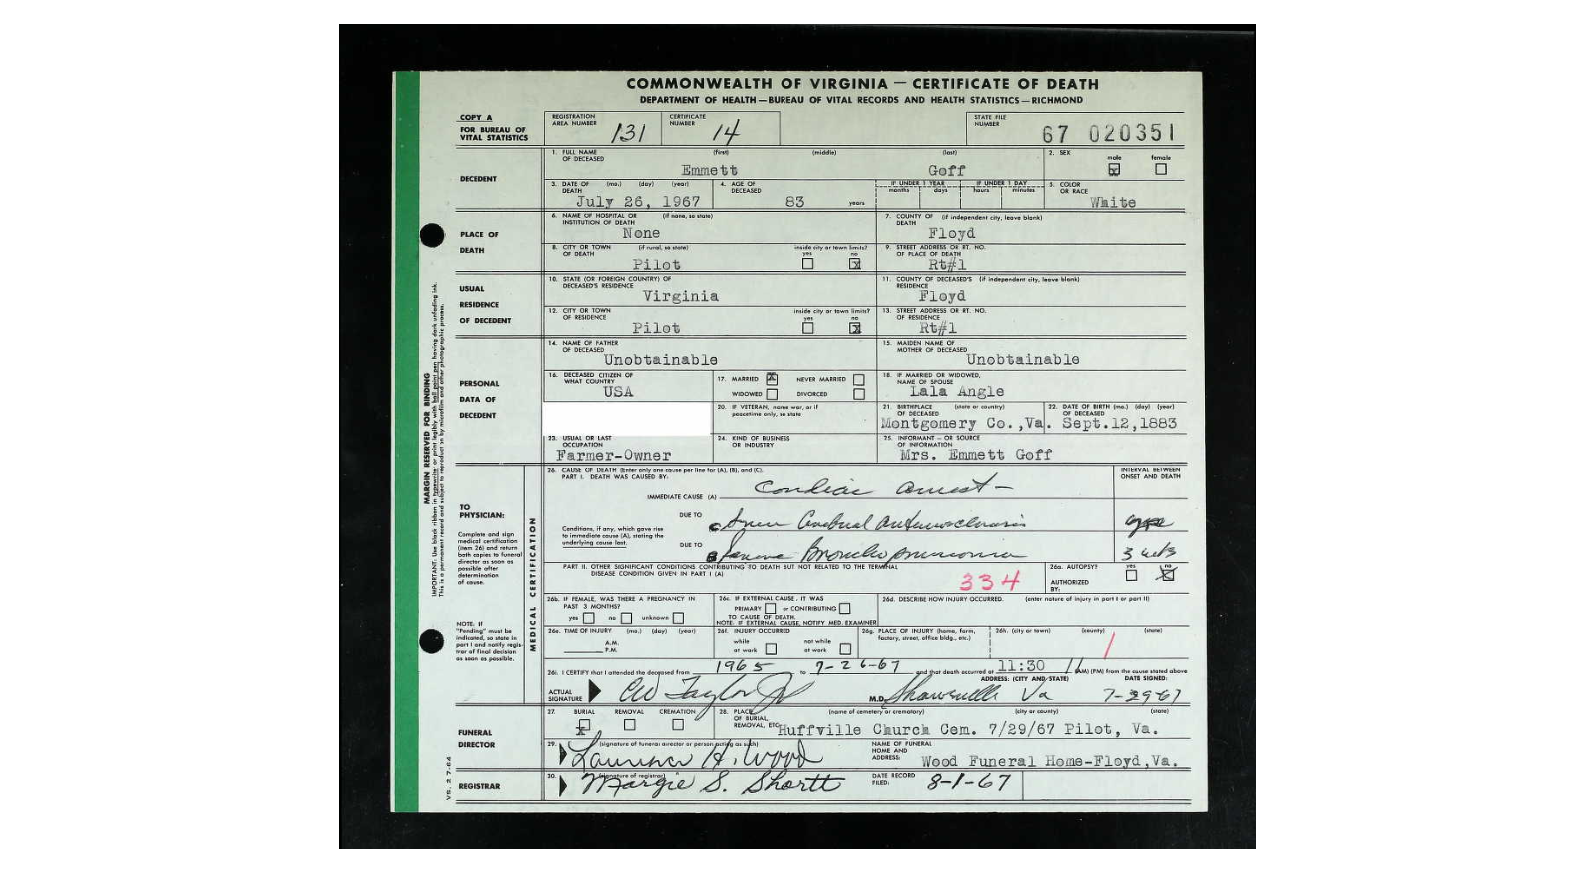 COMMONWEALTH OF VIRGINIA — CERTIFICATE OF DEATH
DEPARTMENT OF HEALTH — BUREAU OF VITAL RECORDS AND HEALTH STATISTICS — RICHMOND
COPY A
FOR BUREAU OF VITAL STATISTICS
REGISTRATION AREA NUMBER 131
CERTIFICATE NUMBER 14
STATE FILE NUMBER 67 020351
DECEDENT
1. FULL NAME OF DECEASED (first) (middle) (last)
Emmett Goff
2. SEX male female
3. DATE OF DEATH (mo.) (day) (year)
July 26, 1967
4. AGE OF DECEASED 83 years
IF UNDER 1 YEAR months days
IF UNDER 1 DAY hours minutes
5. COLOR OR RACE White
PLACE OF DEATH
6. NAME OF HOSPITAL OR INSTITUTION OF DEATH (if none, so state)
None
7. COUNTY OF DEATH (if independent city, leave blank)
Floyd
8. CITY OR TOWN OF DEATH (if rural, so state)
Pilot
inside city or town limits? yes no
9. STREET ADDRESS OR RT. NO. OF PLACE OF DEATH
Rt#1
USUAL RESIDENCE OF DECEDENT
10. STATE (OR FOREIGN COUNTRY) OF DECEASED'S RESIDENCE
Virginia
11. COUNTY OF DECEASED'S RESIDENCE (if independent city, leave blank)
Floyd
12. CITY OR TOWN OF RESIDENCE
Pilot
inside city or town limits? yes no
13. STREET ADDRESS OR RT. NO. OF RESIDENCE
Rt#1
PERSONAL DATA OF DECEDENT
14. NAME OF FATHER OF DECEASED
Unobtainable
15. MAIDEN NAME OF MOTHER OF DECEASED
Unobtainable
16. DECEASED CITIZEN OF WHAT COUNTRY
USA
17. MARRIED NEVER MARRIED
WIDOWED DIVORCED
18. IF MARRIED OR WIDOWED, NAME OF SPOUSE
Lala Angle
20. IF VETERAN, name war, or if peacetime only, so state
21. BIRTHPLACE OF DECEASED (state or country)
Montgomery Co.,Va.
22. DATE OF BIRTH OF DECEASED (mo.) (day) (year)
Sept.12,1883
23. USUAL OR LAST OCCUPATION
Farmer-Owner
24. KIND OF BUSINESS OR INDUSTRY
25. INFORMANT — OR SOURCE OF INFORMATION
Mrs. Emmett Goff
MARGIN RESERVED FOR BINDING
TO PHYSICIAN:
Complete and sign medical certification (item 26) and return both copies to funeral director as soon as possible after determination of cause.
NOTE: If "Pending" must be indicated, so state in part I and notify registrar of final decision as soon as possible.
MEDICAL CERTIFICATION
26. CAUSE OF DEATH (Enter only one cause per line for (A), (B), and (C).
PART I. DEATH WAS CAUSED BY:
INTERVAL BETWEEN ONSET AND DEATH
IMMEDIATE CAUSE (A) Cardiac arrest —
Conditions, if any, which gave rise to immediate cause (A), stating the underlying cause last.
DUE TO C Cerebral arteriosclerosis
DUE TO B Bronchopneumonia 3 wks
PART II. OTHER SIGNIFICANT CONDITIONS CONTRIBUTING TO DEATH BUT NOT RELATED TO THE TERMINAL DISEASE CONDITION GIVEN IN PART I (A)
334
26a. AUTOPSY? yes no
AUTHORIZED BY:
26b. IF FEMALE, WAS THERE A PREGNANCY IN PAST 3 MONTHS?
yes no unknown
26c. IF EXTERNAL CAUSE, IT WAS
PRIMARY or CONTRIBUTING
TO CAUSE OF DEATH.
NOTE: IF EXTERNAL CAUSE, NOTIFY MED. EXAMINER
26d. DESCRIBE HOW INJURY OCCURRED. (enter nature of injury in part I or part II)
26e. TIME OF INJURY (mo.) (day) (year)
A.M.
P.M.
26f. INJURY OCCURRED
while at work not while at work
26g. PLACE OF INJURY (home, farm, factory, street, office bldg., etc.)
26h. (city or town) (county) (state)
26i. I CERTIFY that I attended the deceased from 1965 to 7-26-67 and that death occurred at 11:30 (AM) (PM) from the cause stated above
ACTUAL SIGNATURE CW Taylor Jr M.D.
ADDRESS: (CITY AND STATE) Shawsville Va
DATE SIGNED: 7-29-67
FUNERAL DIRECTOR
27. BURIAL REMOVAL CREMATION
28. PLACE OF BURIAL, REMOVAL, ETC. (name of cemetery or crematory) (city or county) (state)
Huffville Church Cem. 7/29/67 Pilot, Va.
29. (signature of funeral director or person acting as such)
Laurence H. Wood
NAME OF FUNERAL HOME AND ADDRESS:
Wood Funeral Home-Floyd,Va.
REGISTRAR
30. (signature of registrar)
Margie S. Shortt
DATE RECORD FILED: 8-1-67